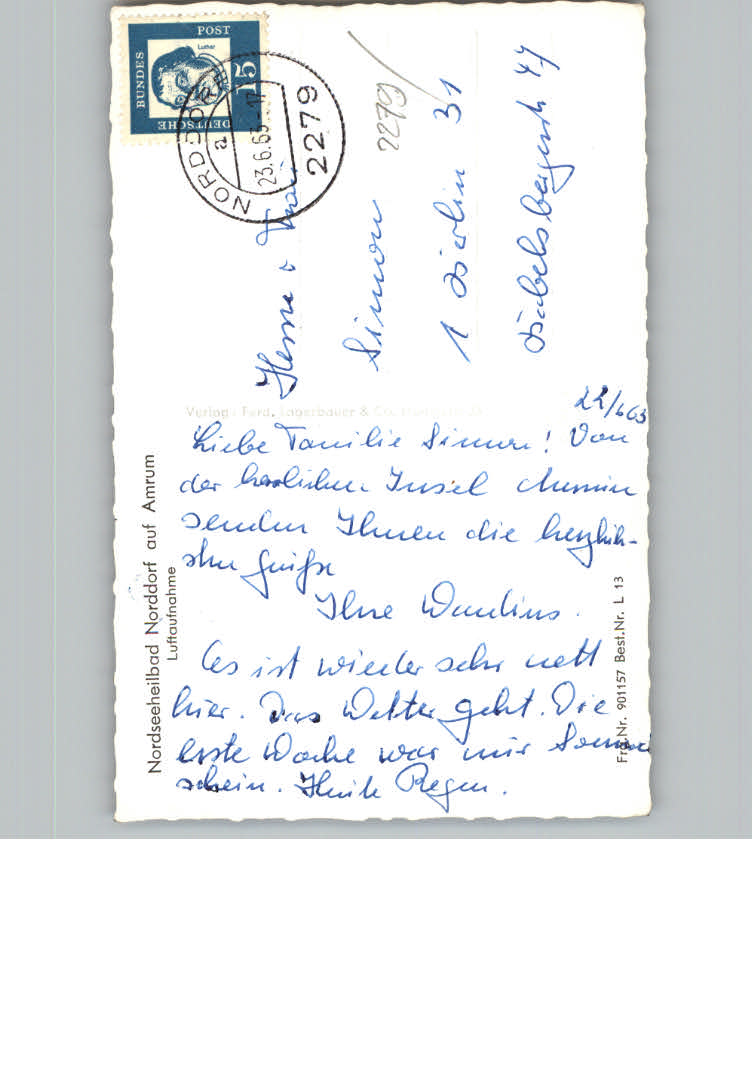 DEUTSCHE
BUNDES
POST
Luther
15
NORDDORF
a
23.6.63-17
2279
2279
Herrn u Frau
Simon
1 Berlin 31
Babelsbergerstr 47
Verlag: Ferd. Lagerbauer & Co.
22/6 63
Liebe Familie Simon! Von
der herrlichen Insel Amrum
senden Ihnen die herzlich-
sten Grüße
Ihre
Es ist wieder sehr nett
hier. Das Wetter geht. Die
erste Woche war nur Sonnen
schein. Heute Regen.
Nordseeheilbad Norddorf auf Amrum
Luftaufnahme
Frg.Nr. 901157 Best.Nr. L 13